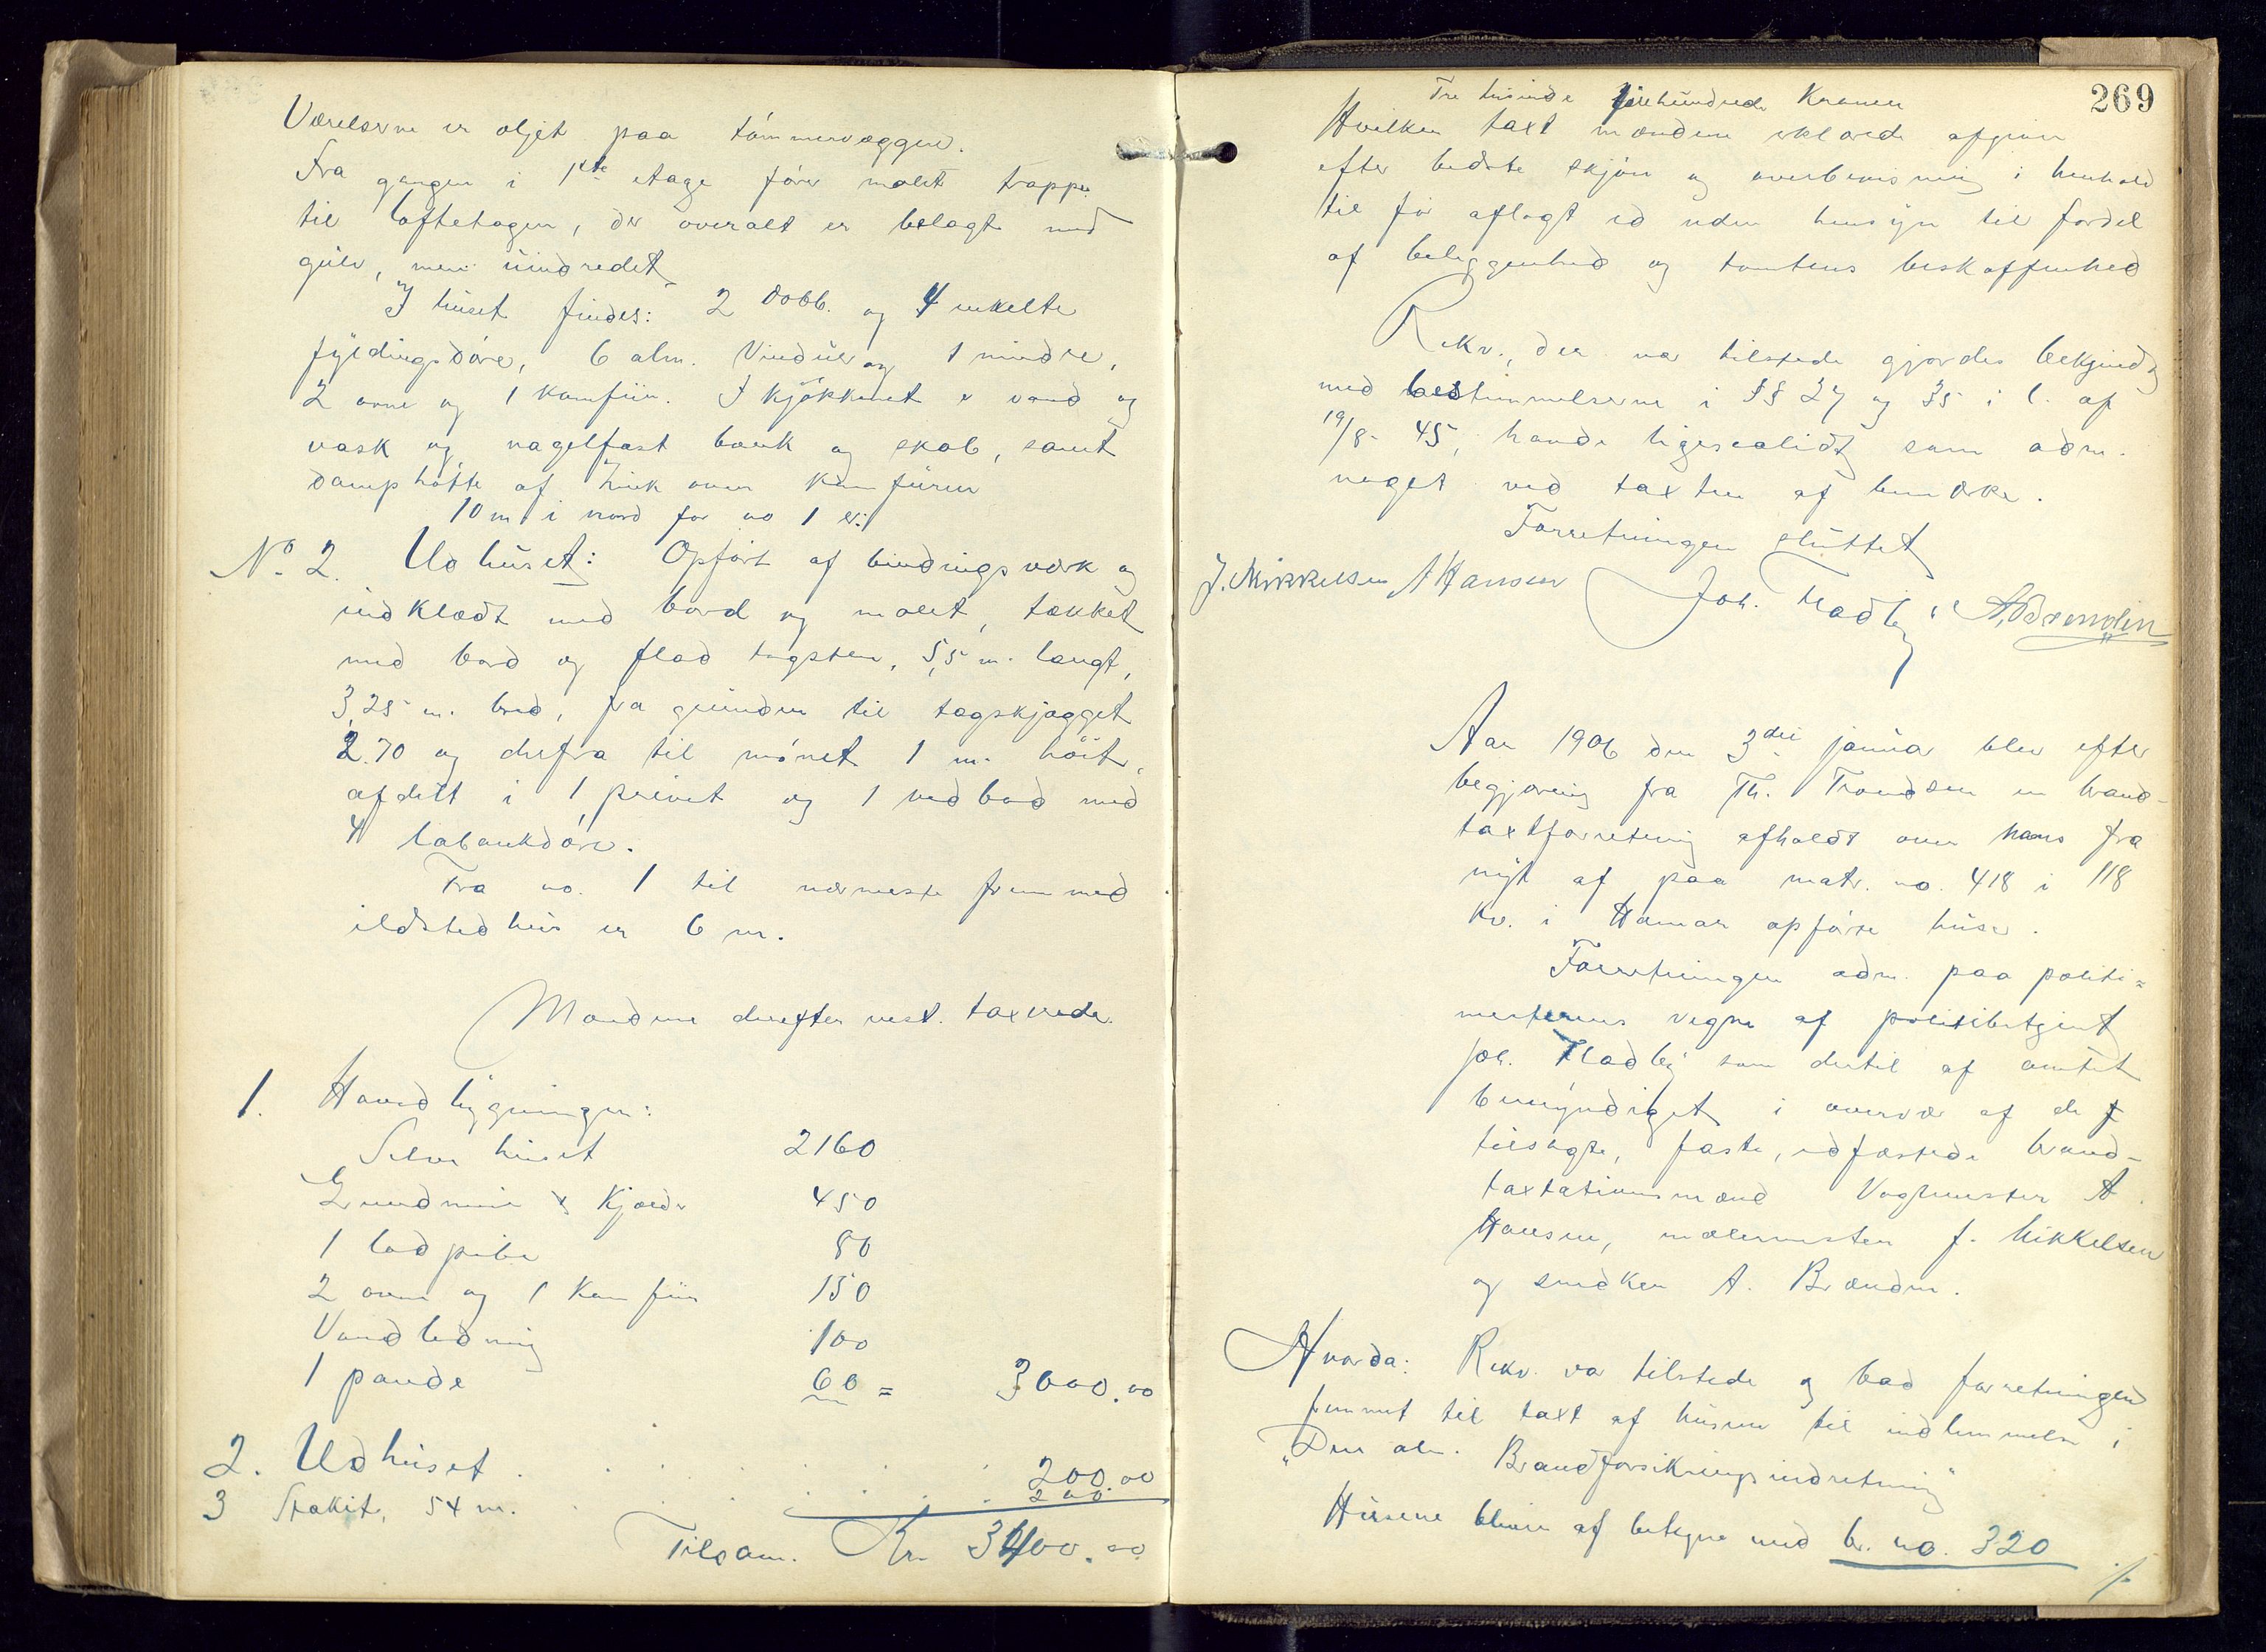 Værelserne er oljet paa tømmervæggene.
Fra gangen i 1ste etage fører malet trappe
til loftetagen, der overalt er belagt med
gulv, men uindredet.
I huset findes: 2 dobb. og 4 enkelte
fyldingsdøre, 6 alm. Vinduer og 1 mindre,
2 ovne og 1 komfur. I kjøkkenet er vand og
vask og nagelfast bænk og skab, samt
damphætte af zink over komfuren
10 m i nord for no 1 er:
No. 2. Udhuset: Opført af bindingsværk og
indklædt med bord og malet, tækket
med bord og flad tagsten, 5,5 m. langt,
3,25 m. bred, fra grunden til tagskjægget
2.70 og derfra til mønet 1 m. høit,
afdelt i 1 privet og 1 vedbod med
4 labankdøre.
Fra no. 1 til nærmeste fremmed
ildstedhus er 6 m.
Mændene derefter vest. taxerede
1. Hovedbygningen:
Selve huset 2160
Grundmur & Kjælder 450
1 lodpibe 80
2 ovne og 1 Komfur 150
Vandledning 100
1 pande 60 = 3000.00
2. Udhuset . . . . . . . 200.00
3 Stakit, 54 m. . . . . . . 200
Tilsam. Kr. 3400.00
269
Tre tusinde firehundrede Kroner
Hvilken taxt mændene erklærede afgiven
efter bedste skjøn og overbevisning i henhold
til før aflagt ed uden hensyn til fordel
af beliggenhed og tomtens beskaffenhed
Rekv., der var tilstede gjordes bekjendt
med bestemmelserne i §§ 27 og 35 i l. af
19/8- 45, havde ligesaalidt som adm.
noget ved taxten at bemærke.
Forretningen sluttet
J. Mikkelsen A Hansen Joh. Fladby A. Brænden
Aar 1906 den 3die januar blev efter
begjæring fra Th. Trondsen en brand-
taxtforretning afholdt over hans fra
nyt af paa matr. no. 418 i 118
kv. i Hamar opførte huse.
Forretningen adm. paa politi=
mesterens vegne af politibetjent
joh. Fladby som dertil af amtet
bemyndiget i overvær af de
tilsagte, faste, edfæstede brand-
taxtationsmænd Vognmester A.
Hansen, malermester J. Mikkelsen
og snedker A. Brænden.
Hvorda: Rekv. var tilstede og bad forretningen
fremmet til taxt af husene til indlemmelse i
"Den alm. Brandforsikringsindretning"
Husene bliver at betegne med br. no. 320
./.